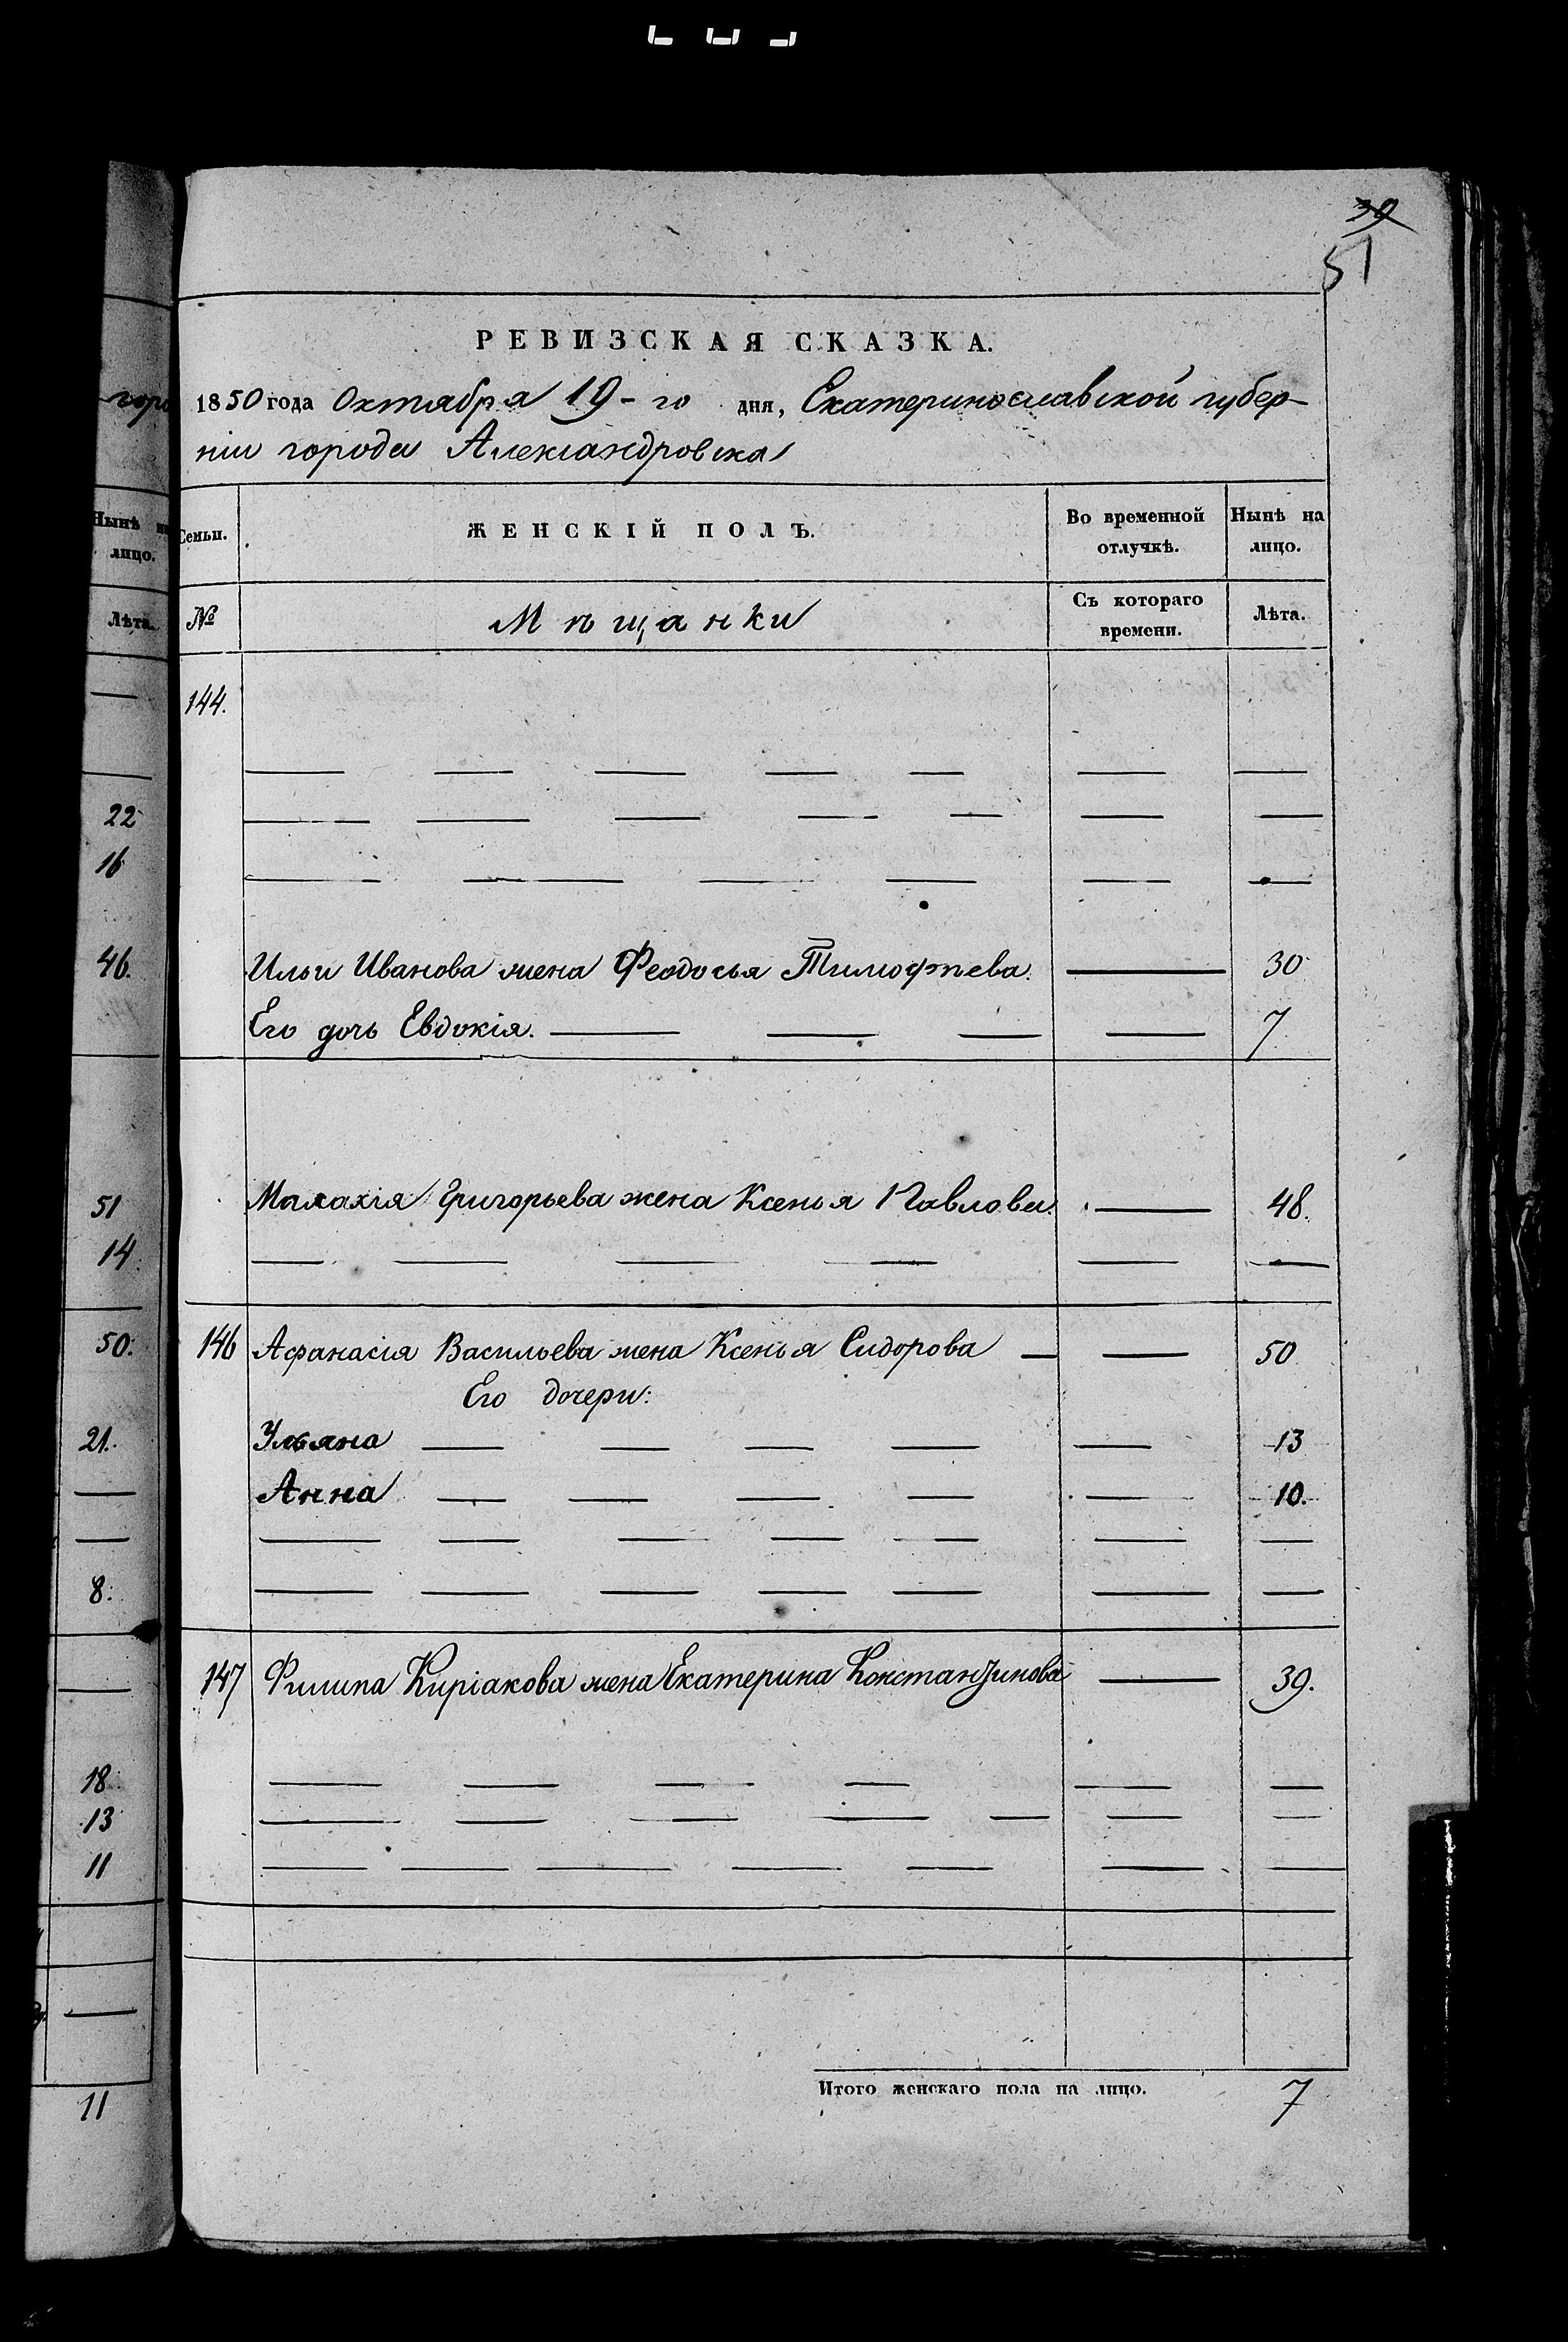 39
51
РЕВИЗСКАЯ СКАЗКА.
1850 года Октября 19-го дня, Екатеринославской губер-
ніи города Александровска
Семьи.
ЖЕНСКІЙ ПОЛЪ.
Во временной отлучкѣ.
Нынѣ на лицо.
№
Мѣщанки
Съ котораго времени.
Лѣта.
144.
Ильи Иванова жена Феодосья Тимофѣева. 30
Его дочь Евдокія. 7
Малахія Григорьева жена Ксенья Павлова. 48.
146 Афанасія Васильева жена Ксенья Сидорова 50
Его дочери:
Ульяна 13
Анна 10.
147 Филипа Киріакова жена Екатерина Константинова 39.
Итого женскаго пола на лицо. 7
горо
Нынѣ на
лицо.
Лѣта.
22
16
46.
51
14.
50.
21.
8.
18.
13
11
11